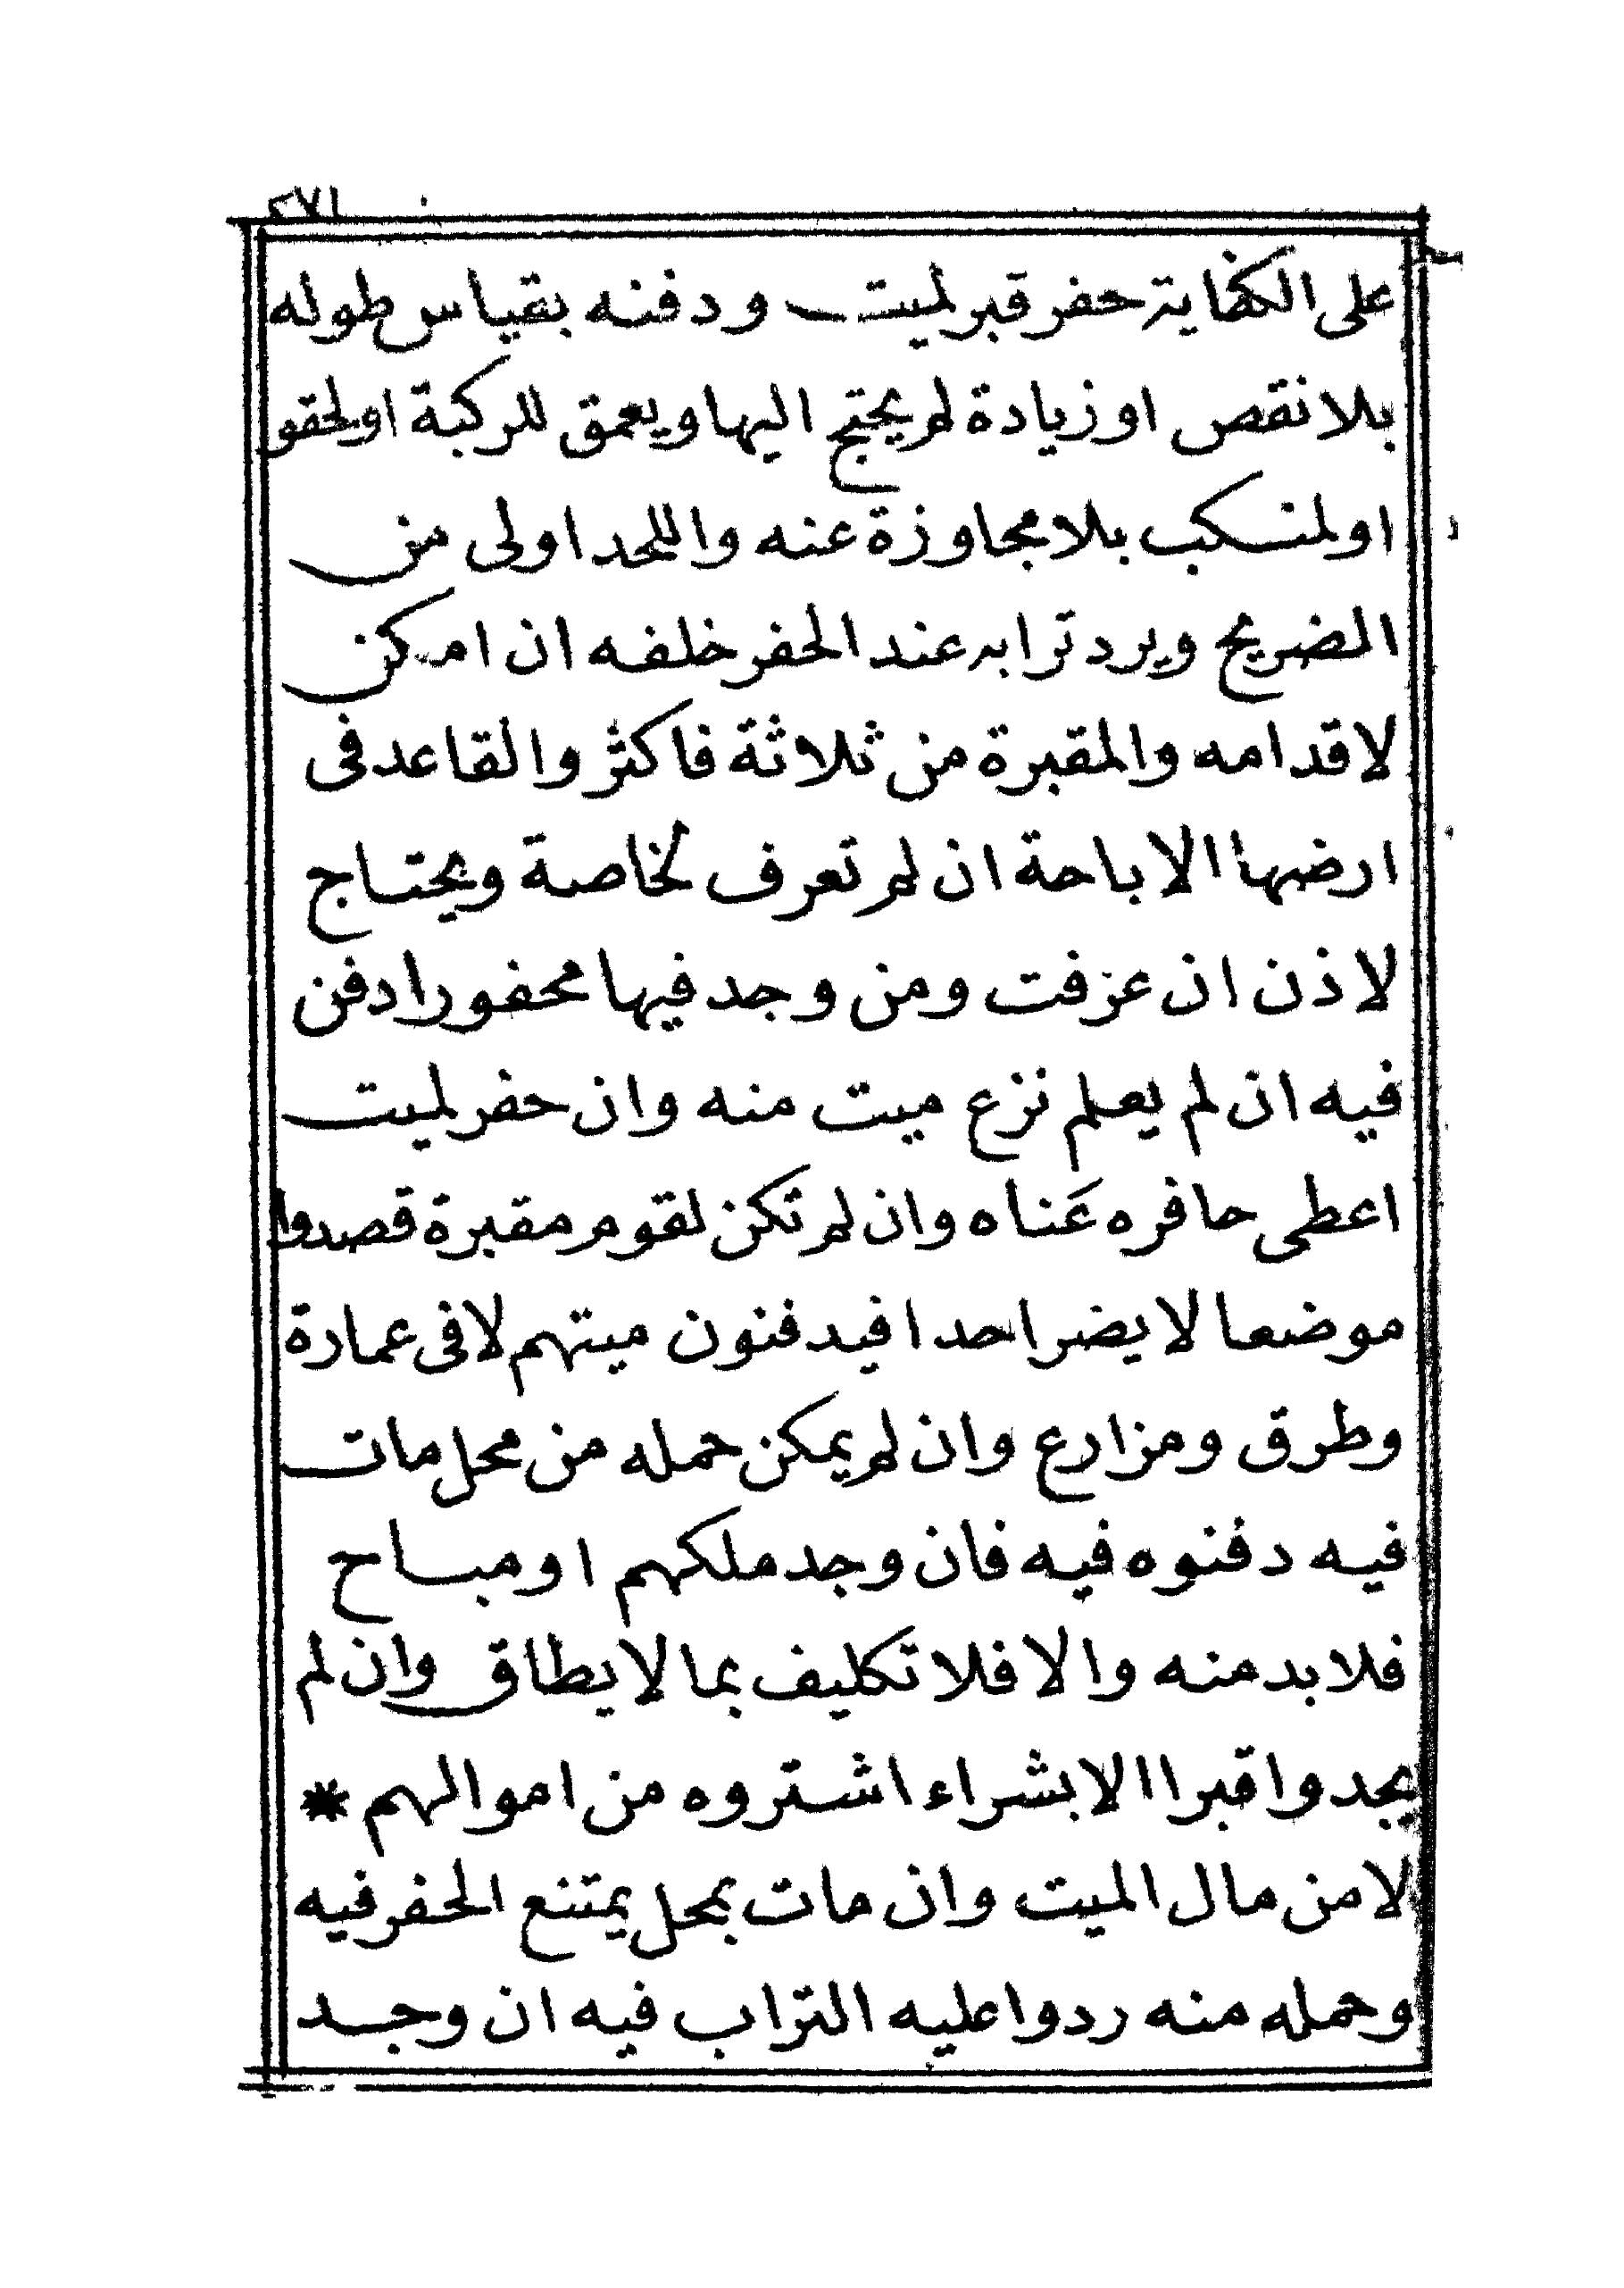 ٢٧١
على الكفاية حفر قبر لميت ودفنه بقياس طوله
بلا نقص او زيادة لم يحتج اليها ويعمق للركبة او لحقو
او لمنكب بلا مجاوزة عنه واللحد اولى من
الضريح ويرد ترابه عند الحفر خلفه ان امكن
لا قدامه والمقبرة من ثلاثة فاكثر والقاعد فى
ارضها الاباحة ان لم تعرف لخاصة ويحتاج
لاذن ان عرفت ومن وجد فيها محفورا دفن
فيه ان لم يعلم نزع ميت منه وان حفر لميت
اعطى حافره عَناه وان لم تكن لقوم مقبرة قصدوا
موضعا لا يضر احدا فيدفنون ميتهم لا فى عمارة
وطرق ومزارع وان لم يمكن حمله من محل مات
فيه دفنوه فيه فان وجد ملكهم او مباح
فلا بد منه والا فلا تكليف بما لا يطاق وان لم
يجدوا قبرا الا بشراء اشتروه من اموالهم *
لا من مال الميت وان مات بمحل يمتنع الحفر فيه
وحمله منه ردوا عليه التراب فيه ان وجد